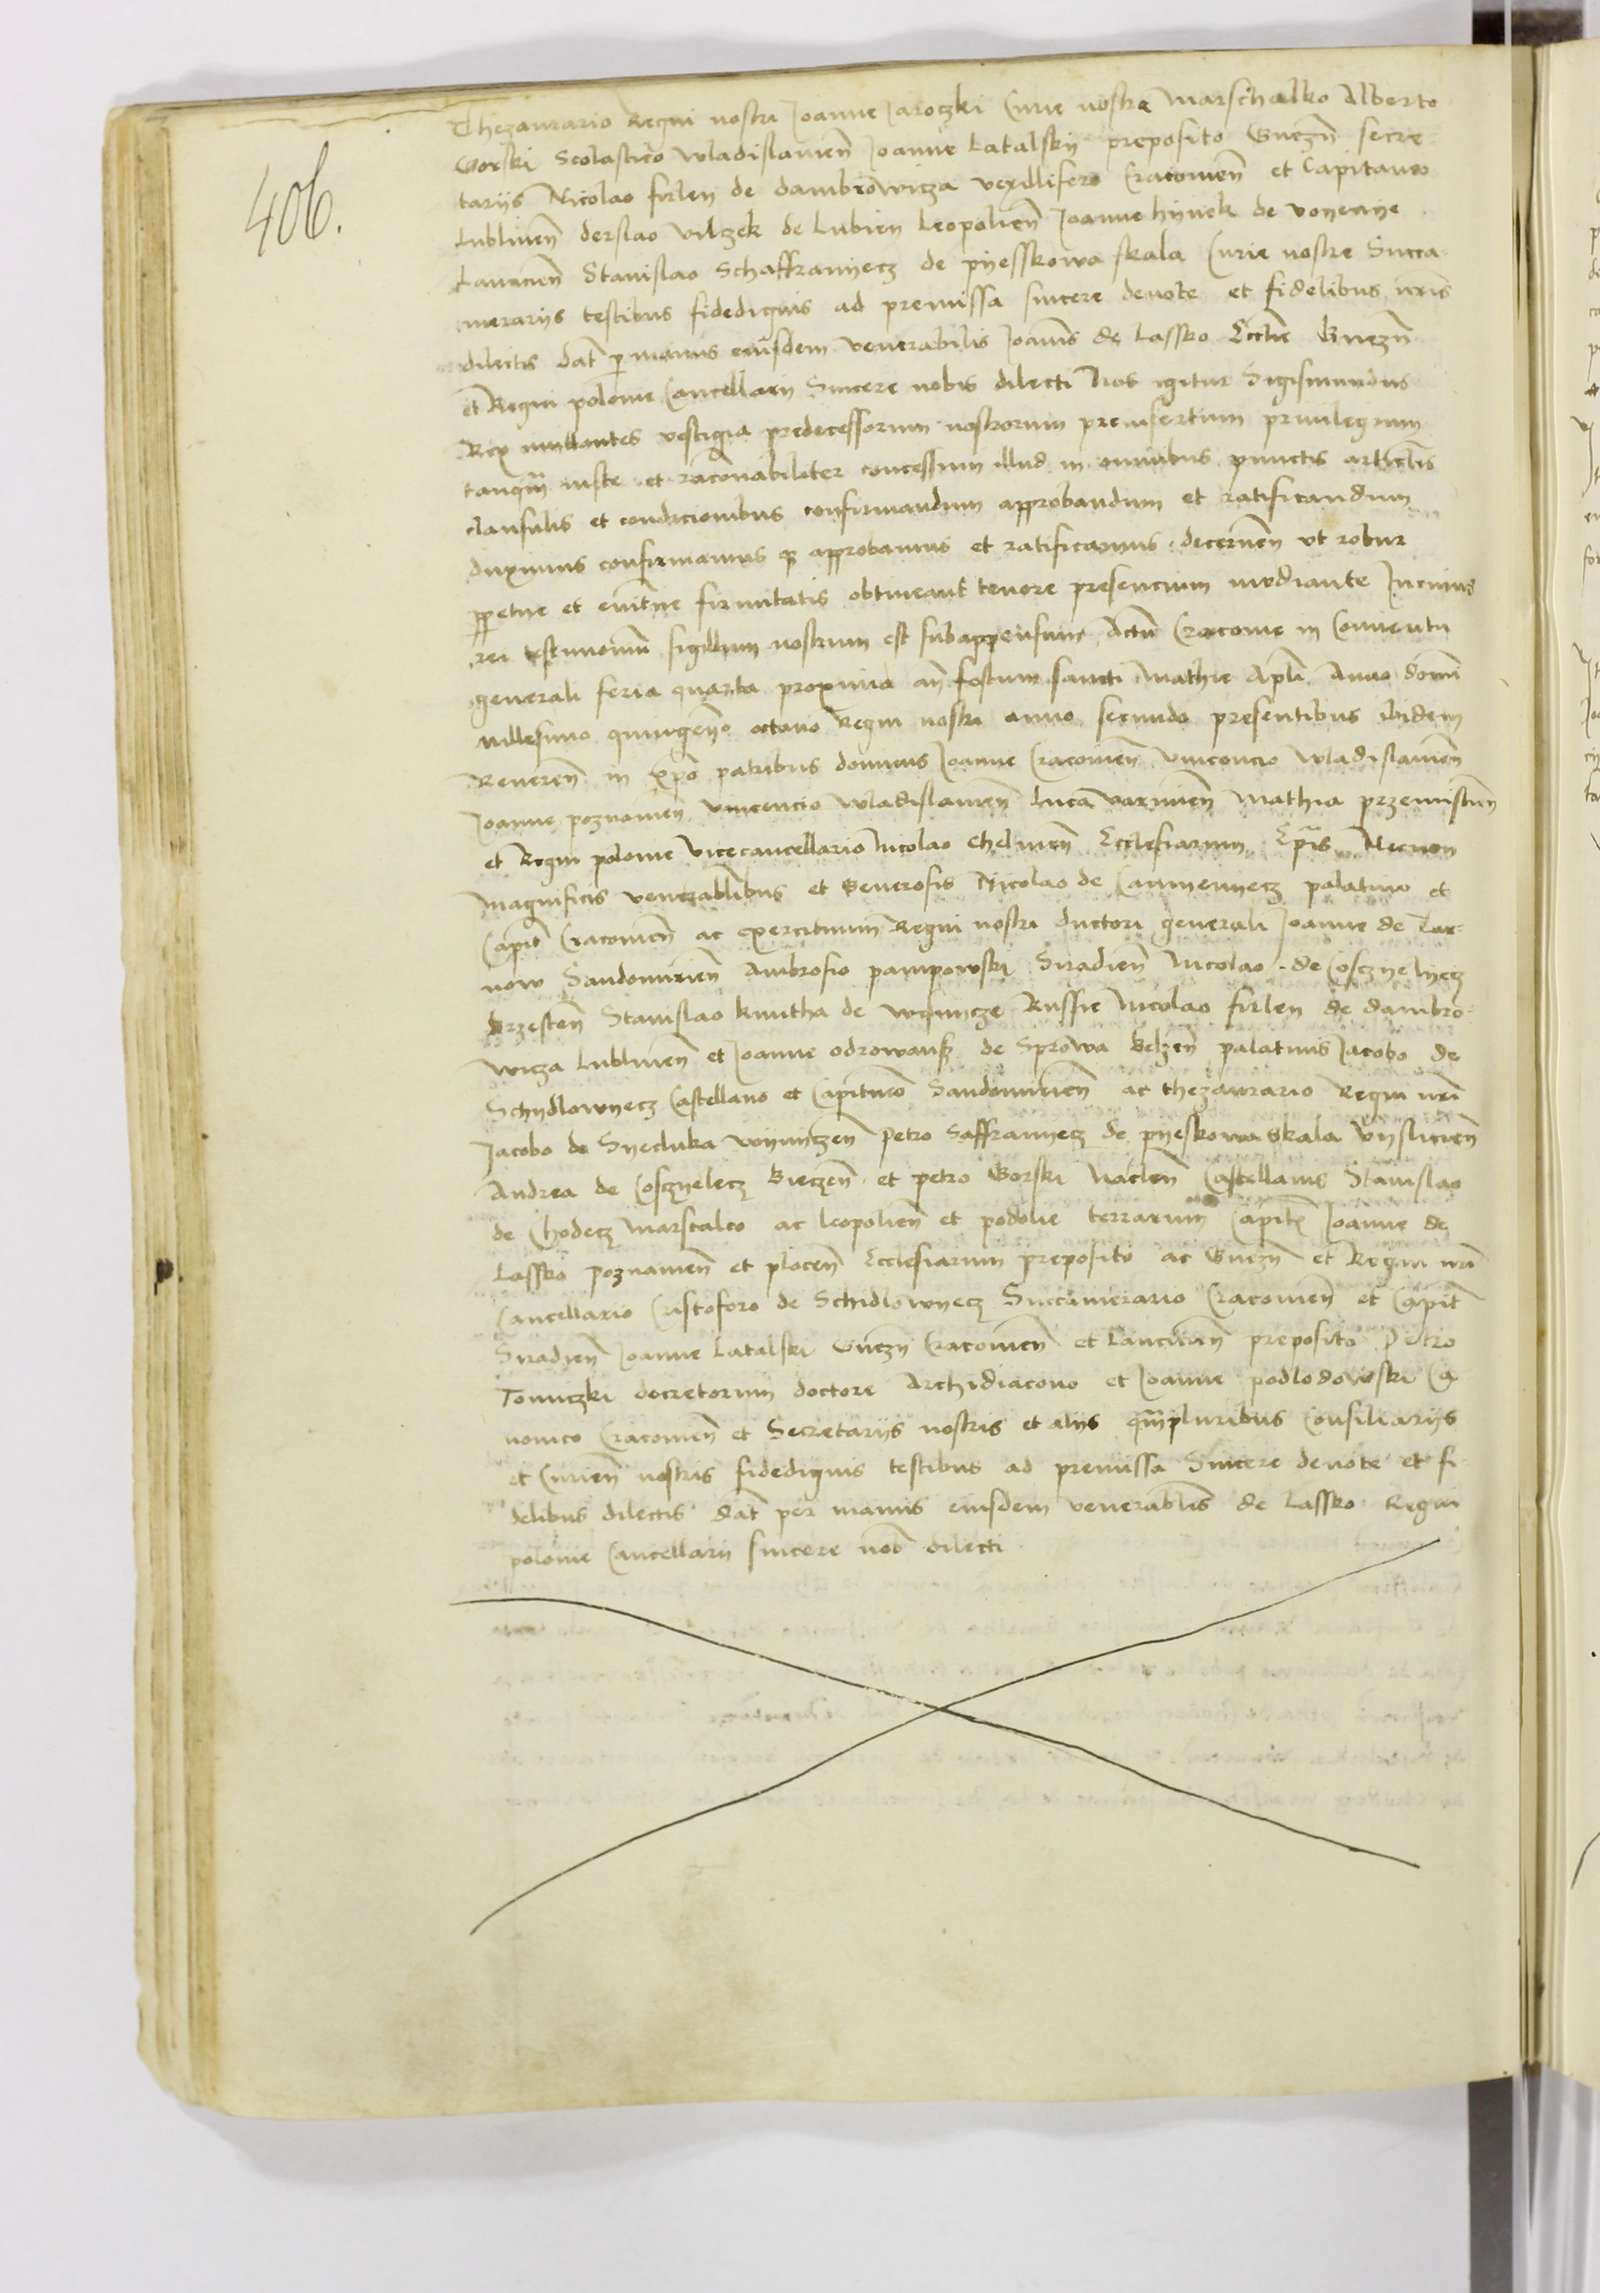 406.
Thezaurario Regni nostri Joanne Jaroczki Curie nostre Marschalko Alberto
Gorski Scolastico Wladislauien̄ Joanne Latalskij preposito Gnezn̄ secre
tarijs Nicolao firley de dambrowicza vexillifero Cracouien̄ et Capitaneo
Lublinen̄ derslao vilczek de Lubien Leopolien̄ Joanne hijnek de
Lancicien̄ Stanislao Schaffranijecz de pijesskowa skala Curie nostre Succa
merarijs testibus fidedignis ad premissa sincere deuote et fidelibus nr̄is
dilectis dat̄ p manus eiusdem venerabilis Joannis de Lassko Eccl̄ie Gnezn̄
et Regni polonie Cancellarij Sincere nobis dilecti Nos igitur Sigismundus
Rex imitantes vestigia predecessorum nostrorum preinsertum priuilegium
tanq̄m iuste et rac̄onabiliter concessum illud in omnibus punctis artic̄lis
clausulis et condicionibus confirmandum approbandum et ratificandum
duximus confirmamus q approbamus et ratificamus decernen̄ vt robur
ppetue et euit̄ne firmitatis obtineant tenore presencium mediante In cuius
rei testimoniū sigillum nostrum est subappensum Actū Cracouie in Conuentu
generali feria quarta proxima an̄ festum sancti Mathie Apl̄i Anno domī
millesimo quingen̄o octauo Regni nostri anno secundo presentibus ibidem
Reueren̄ in xp̄o patribus dominis Joanne Cracouien̄ Vincencio Wladislauien̄
Joanne poznanien̄ Vincencio Wladislauien̄ Luca varmien̄ Mathia przemislien̄
et Regni polonie Vicecancellario Nicolao Chelmen̄ Ecclesiarum Ep̄is Necnon
Magnificis venerabl̄ibus et Generosis Nicolao de Cammenijecz palatino et
Capit̄ Cracouien̄ ac exercituum Regni nostri ductori generali Joanne de Tar
now Sandomirien̄ Ambrosio pampowski Siradien̄ Nicolao de Cosczyelyecz
brzesten̄ Stanislao kmitha de Wisnicze Russie Nicolao firley de dambro
wicza Lublinen̄ et Joanne odrowansz de Sprowa Belzen̄ palatinis Jacobo de
Schydlowyecz Castellano et Capitaneo Sandomirien̄ ac thezaurario Regni nr̄i
Jacobo de Syecluka woyniczen̄ Petro Saffranyecz de pyeskowa skala Vyslicien̄
Andrea de Cosczyelecz Bieczen̄ et petro Gorski Naclen̄ Castellanis Stanislao
de Chodecz Marscalco ac leopolien̄ et podolie terrarum Capit̄ Joanne de
Lassko Poznanien̄ et plocen̄ Ecclesiarum preposito ac Gnezn̄ et Regni nr̄i
Cancellario Cristoforo de Schidlowyecz Succamerario Cracouien̄ et Capit̄
Siradien̄ Joanne Latalski Gnezn̄ Cracouien̄ et Lancician̄ preposito Petro
Tomiczki decretorum doctore Archidiacono et Joanne podlodowski Ca
nonico Cracouien̄ et Secretarijs nostris et alijs q̄mpluribus Consiliarijs
et Curien̄ nostris fidedignis testibus ad premissa Sincere deuote et fi
delibus dilectis dat̄ per manus eiusdem venerabl̄is de Lassko Regni
polonie Cancellarij sincere nob̄ dilecti